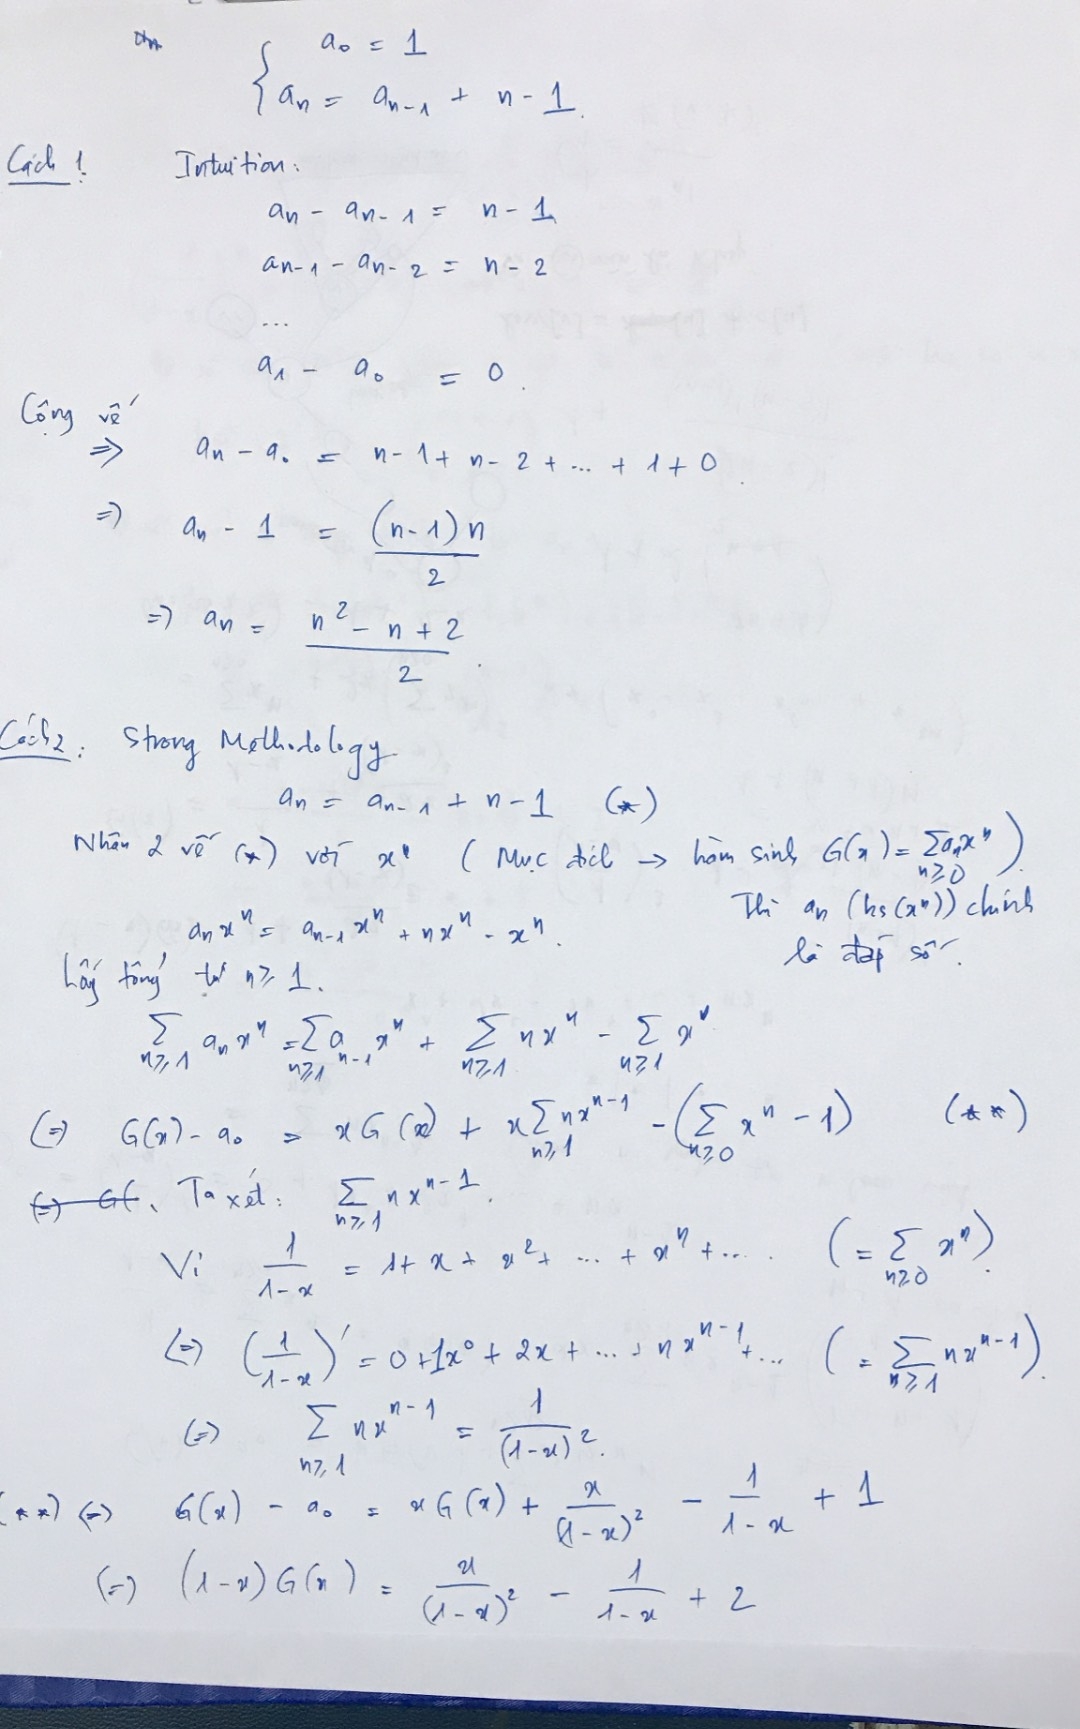 a₀ = 1
aₙ = aₙ₋₁ + n - 1.
Cách 1: Intuition:
aₙ - aₙ₋₁ = n - 1
aₙ₋₁ - aₙ₋₂ = n - 2
...
a₁ - a₀ = 0.
Cộng vế
=> aₙ - a₀ = n - 1 + n - 2 + ... + 1 + 0.
=> aₙ - 1 = (n-1)n / 2
=> aₙ = (n² - n + 2) / 2.
Cách 2: Strong Methodology
aₙ = aₙ₋₁ + n - 1 (*)
Nhân 2 vế (*) với xⁿ ( Mục đích → hàm sinh G(x) = Σ_{n≥0} aₙxⁿ )
Thì aₙ (hs(xⁿ)) chính
aₙxⁿ = aₙ₋₁xⁿ + nxⁿ - xⁿ.
là đáp số.
Lấy tổng từ n ≥ 1.
Σ_{n≥1} aₙxⁿ = Σ_{n≥1} aₙ₋₁xⁿ + Σ_{n≥1} nxⁿ - Σ_{n≥1} xⁿ
(=) G(x) - a₀ = xG(x) + x Σ_{n≥1} nxⁿ⁻¹ - (Σ_{n≥0} xⁿ - 1) (**)
Ta xét: Σ_{n≥1} nxⁿ⁻¹.
Vì 1/(1-x) = 1 + x + x² + ... + xⁿ + ... ( = Σ_{n≥0} xⁿ ).
(=) (1/(1-x))' = 0 + 1x⁰ + 2x + ... + nxⁿ⁻¹ + ... ( = Σ_{n≥1} nxⁿ⁻¹ ).
(=) Σ_{n≥1} nxⁿ⁻¹ = 1/(1-x)².
(**) (=) G(x) - a₀ = xG(x) + x/(1-x)² - 1/(1-x) + 1
(=) (1-x)G(x) = x/(1-x)² - 1/(1-x) + 2